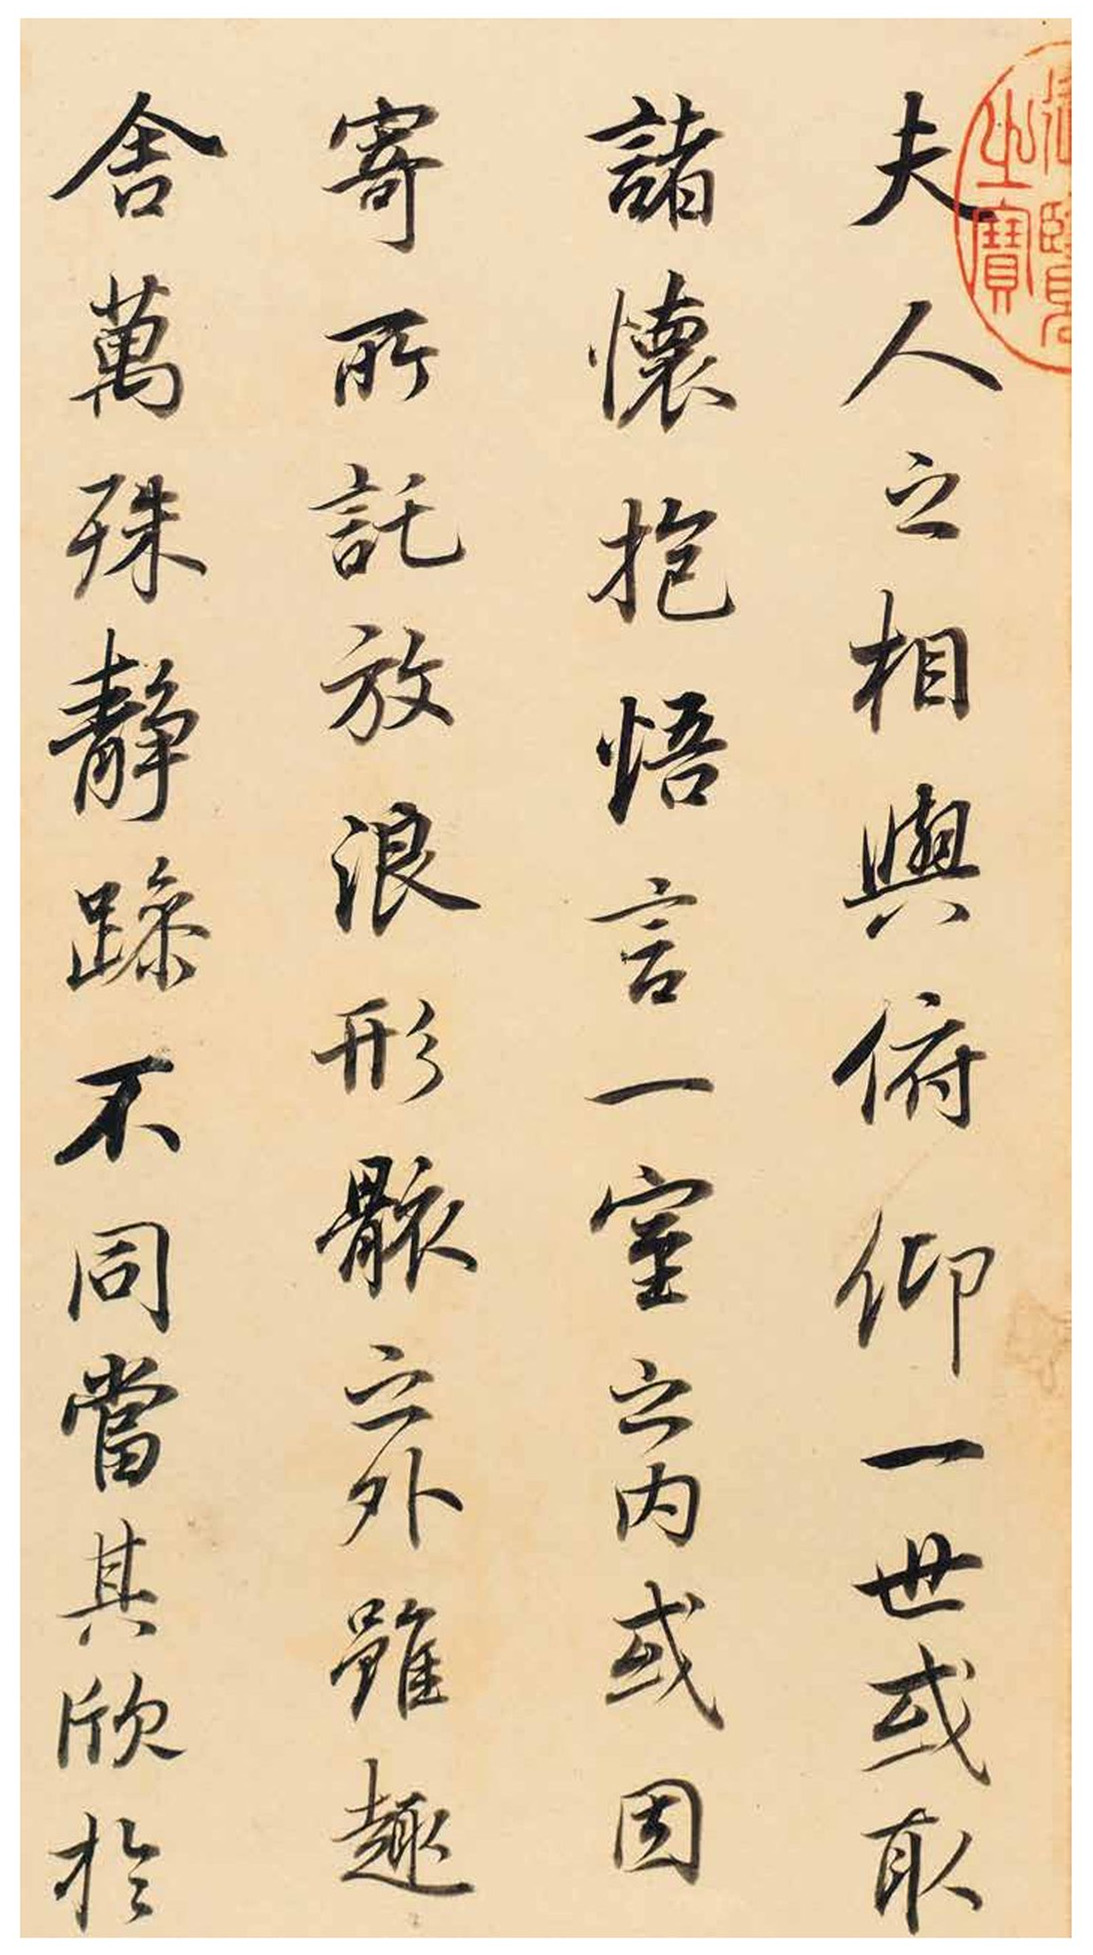 夫人之相與俯仰一世或取
諸懷抱悟言一室之內或因
寄所託放浪形骸之外雖趣
舍萬殊靜躁不同當其欣於
御覽之寶